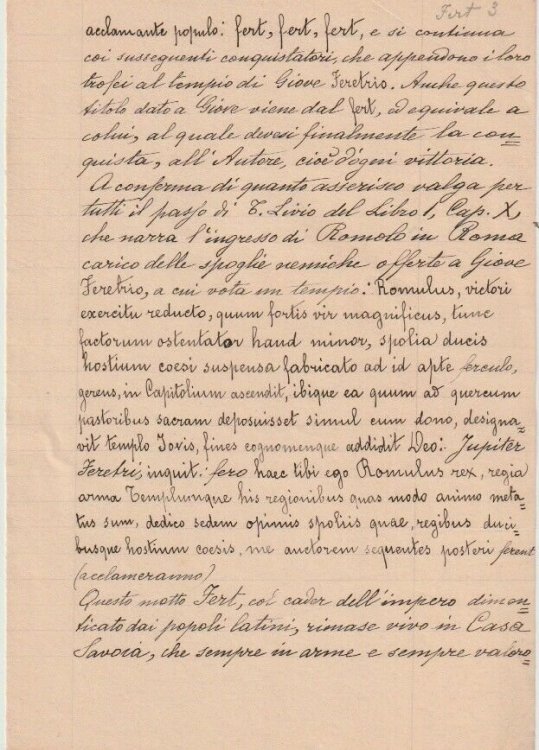 Fert 3
acclamante popolo: fert, fert, fert, e si continua
coi susseguenti conquistatori, che appendono i loro
trofei al tempio di Giove Feretrio. Anche questo
titolo dato a Giove viene dal fert, ed equivale a
colui, al quale devesi finalmente la con=
quista, all'Autore, cioè d'ogni vittoria.
A conferma di quanto asserisco valga per
tutti il passo di T. Livio del Libro I, Cap. X,
che narra l'ingresso di Romolo in Roma
carico delle spoglie nemiche offerte a Giove
Feretrio, a cui vota un tempio: Romulus, victori
exercitu reducto, quum fortis vir magnificus, tunc
factorum ostentator haud minor, spolia ducis
hostium coesi suspensa fabricato ad id apte ferculo,
gerens, in Capitolium ascendit, ibique ea quum ad quercum
pastoribus sacram deposuisset simul cum dono, designa=
vit templo Iovis, fines cognomenque addidit Deo: Jupiter
Feretri, inquit: fero haec tibi ego Romulus rex, regia
arma Templumque his regionibus quas modo animo meta=
tus sum, dedico sedem opimis spoliis quae, regibus duci=
busque hostium coesis, me auctorem sequentes posteri ferent
(acclameranno)
Questo motto Fert, col cader dell'impero dimen=
ticato dai popoli latini, rimase vivo in Casa
Savoia, che sempre in arme e sempre valoro=